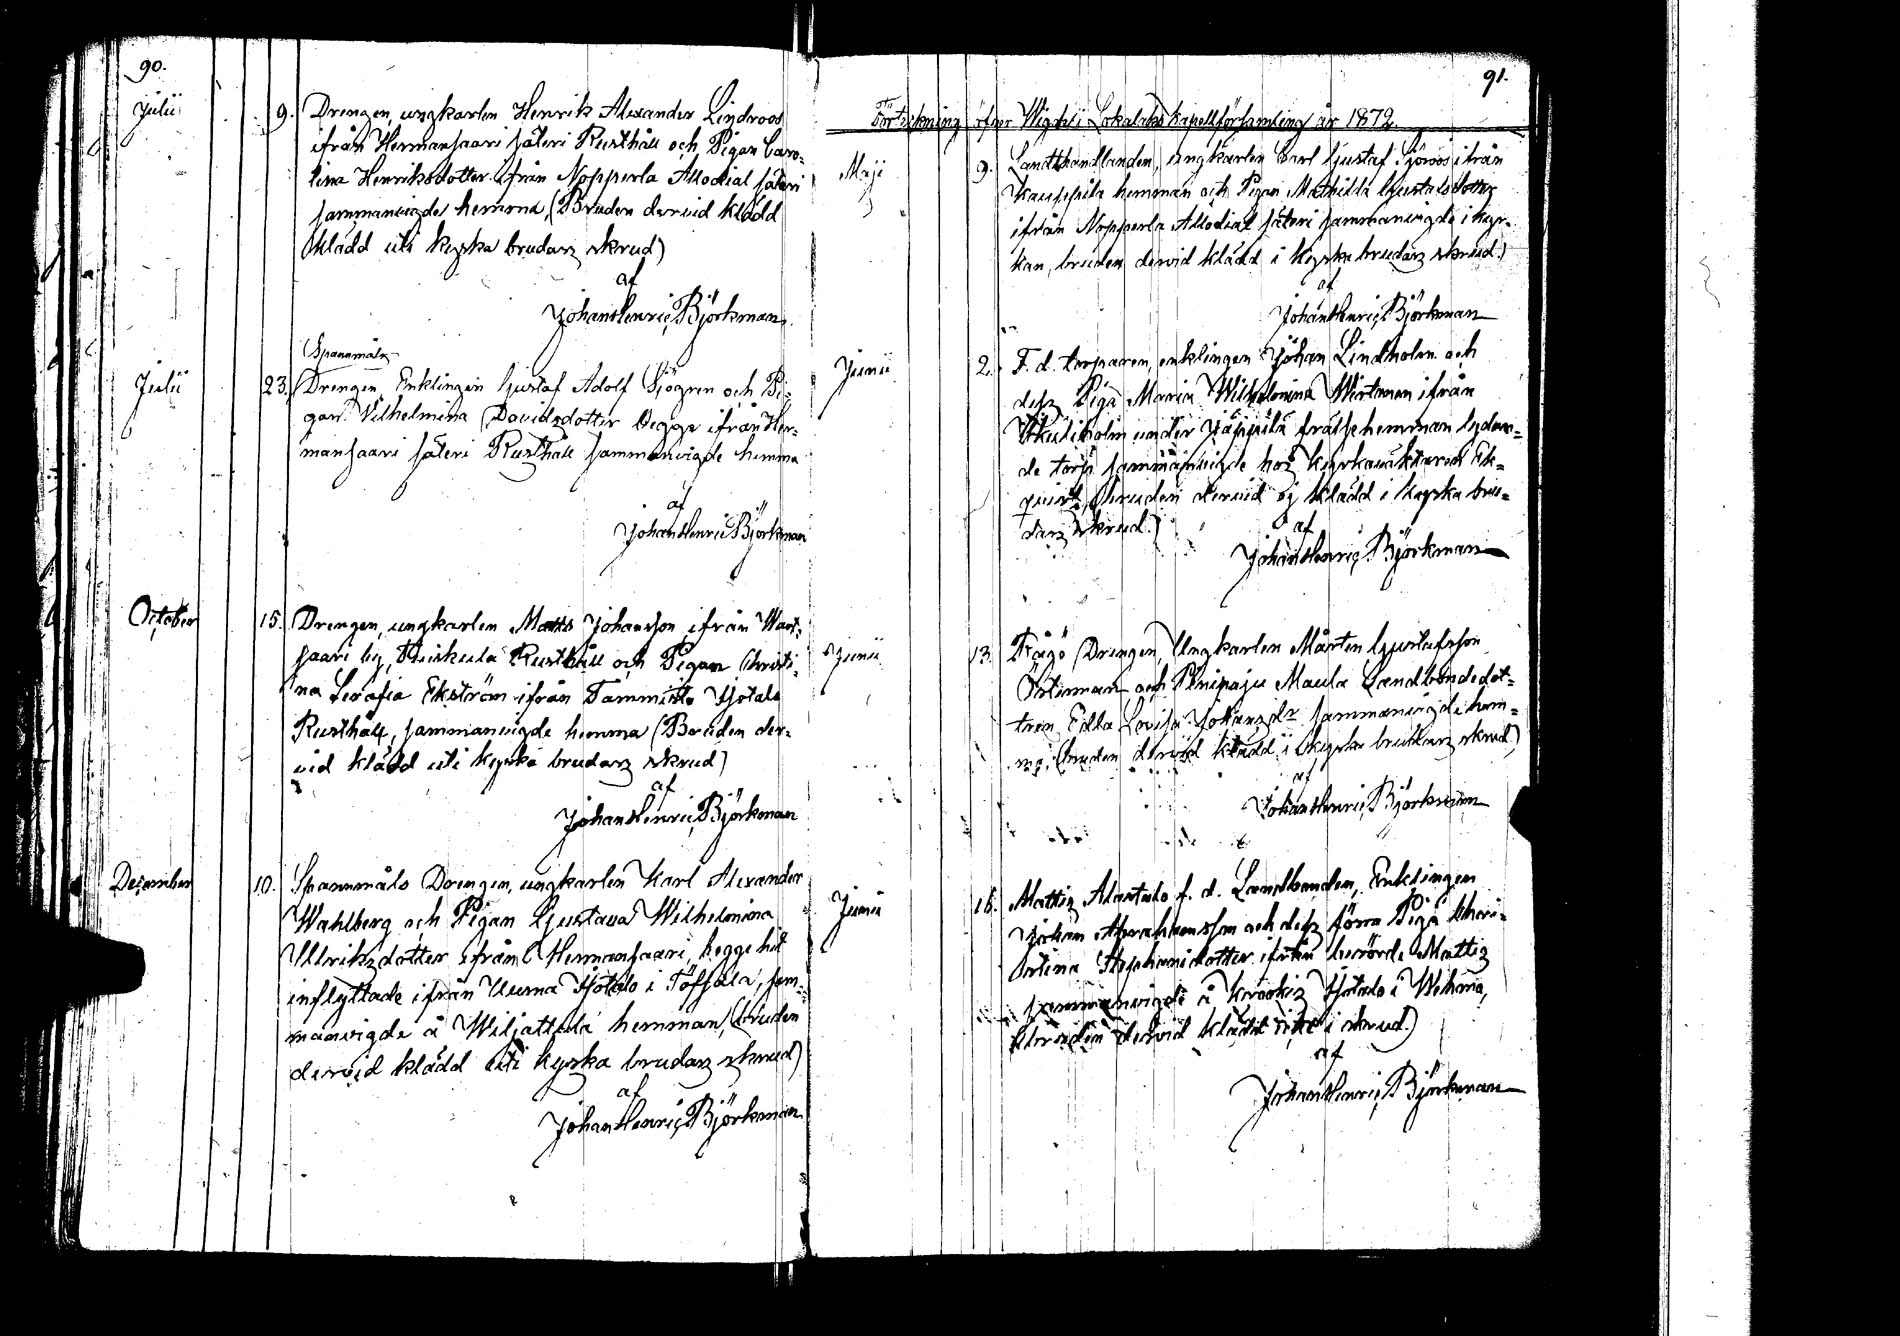 90.
Julii 9. Drengen, ungkarlen Henrik Alexander Lindroos
ifrån Hermansaari säteri Rusthåll och Pigan Caro-
lina Henriksdotter ifrån Nopperla Allodial säteri
sammanvigde hemma, (Bruden dervid klädd
klädd uti kyska brudars skrud)
af
Johan Henric Björkman
Spanmåls
Julii 23. Drengen, Enklingen Gustaf Adolf Sjögren och Pi-
gan Vilhelmina Davidsdotter begge ifrån Her-
mansaari säteri Rusthåll sammanvigde hemma
af
Johan Henric Björkman
October 15. Drengen, ungkarlen Matts Johansson ifrån
saari by, Rusthåll och Pigan Christi-
na Serafia Ekström ifrån Tammisto Ytotalo
Rusthåll, sammanvigde hemma (Bruden der-
vid klädd uti kyska brudars skrud)
af
Johan Henric Björkman
December 10. Spannmåls Drengen, ungkarlen Karl Alexander
Wahlberg och Pigan Gustava Wilhelmina
Ullriksdotter ifrån Hermansaari, begge hit
inflyttade ifrån i Töfsala, sam-
manvigde å Wiljattula hemman, (bruden
dervid klädd uti kyska brudars skrud)
af
Johan Henric Björkman
91.
Förtekning öfver Wigde i Lokalaks Kapellförsamling år 1872.
Maji 9. Landthandlanden, ungkarlen Carl Gustaf Sjöroos ifrån
Kauppila hemman och Pigan Mathilda Gustafsdotter
ifrån Nopperla Allodial säteri sammanvigde i kyr-
kan, bruden dervid klädd i kyska brudars skrud.)
af
Johan Henric Björkman
Junii 2. F. d. torparen, enklingen Johan Lindholm och
dess Piga Maria Wilhelmina Wirtanen ifrån
under Jäppilä frälsehemman lydan-
de torp sammanvigde hos kyrkovaktaren Ek-
qvist, (bruden dervid ej klädd i kyska bru-
dars skrud.)
af
Johan Henric Björkman
Junii 13. Drengen, Ungkarlen Mårten Gustafsson
och Maula Landbondedot-
tren Edla Lovisa Johansdr sammanvigde hem-
ma, (bruden dervid klädd i kyska brudars skrud)
af
Johan Henric Björkman
Junii 16. Mattis Alastalo f. d. Landbonden, Enklingen
Johan Abrahamsson och dess förra Piga
Stephanidotter ifrån berörde Mattis
sammanvigde å Ytotalo i Wehmo,
(bruden dervid klädd icke i skrud.)
af
Johan Henric Björkman